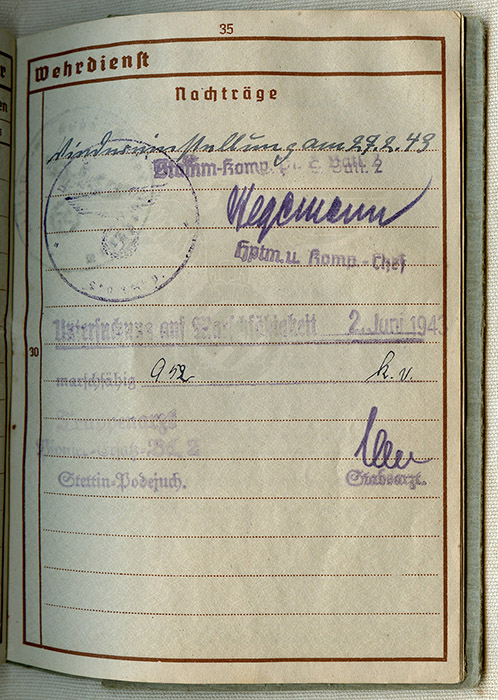 35
Wehrdienst
Nachträge
Wiedereinstellung am 27.2.43
Stamm-Komp. Pi. E. Batl. 2
Wegemann
Hptm. u. Komp.-Chef
Untersuchung auf Marschfähigkeit 2. Juni 1943
30
marschfähig k.v.
Stettin-Podejuch. Stabsarzt.